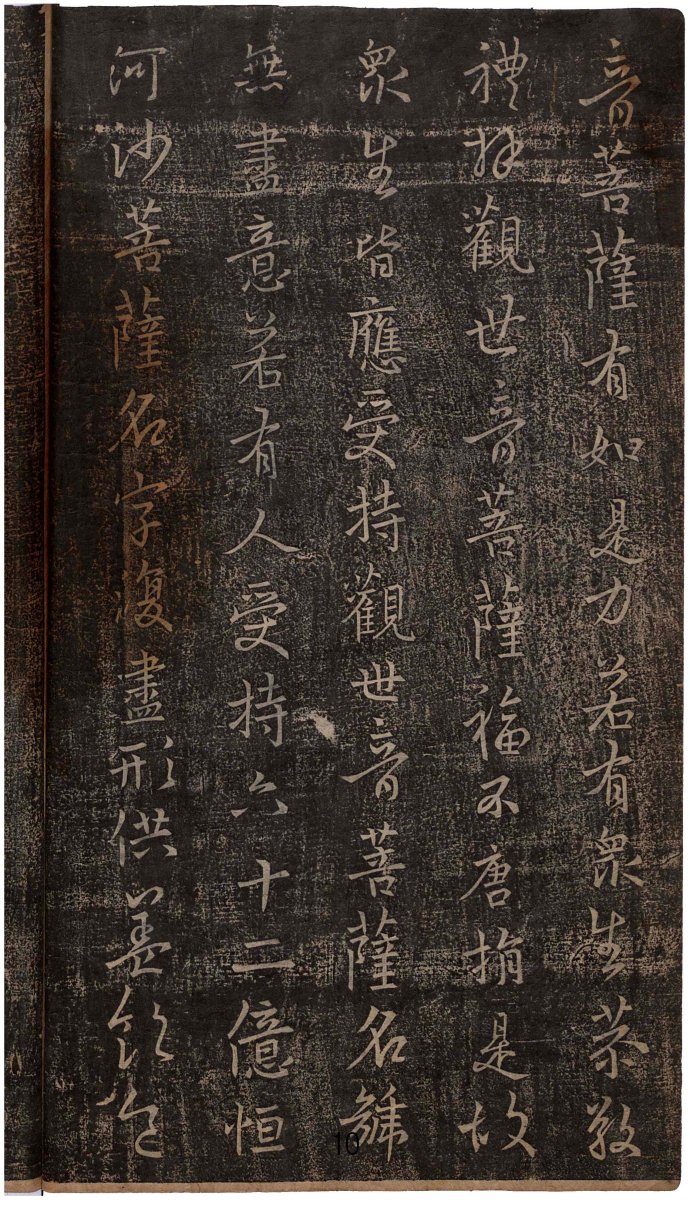 音菩薩有如是力若有眾生恭敬
禮拜觀世音菩薩福不唐捐是故
眾生皆應受持觀世音菩薩名號
無盡意若有人受持六十二億恒
河沙菩薩名字復盡形供養飲食
10